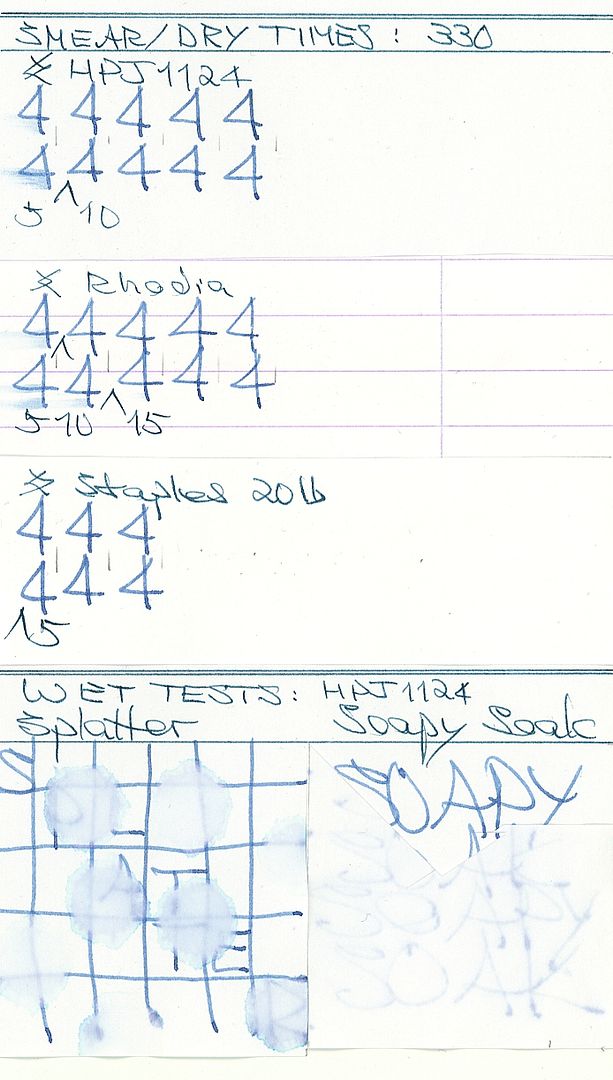 SMEAR/DRY TIMES: 330
HPJ1124
4 4 4 4 4
4 4 4 4 4
5 ^ 10
Rhodia
4 4 4 4 4
4 4 4 4 4
5 10 ^ 15
Staples 20lb
4 4 4
4 4 4
^ 5
WET TESTS: HPJ1124
Splatter Soapy Soak
SOAPY